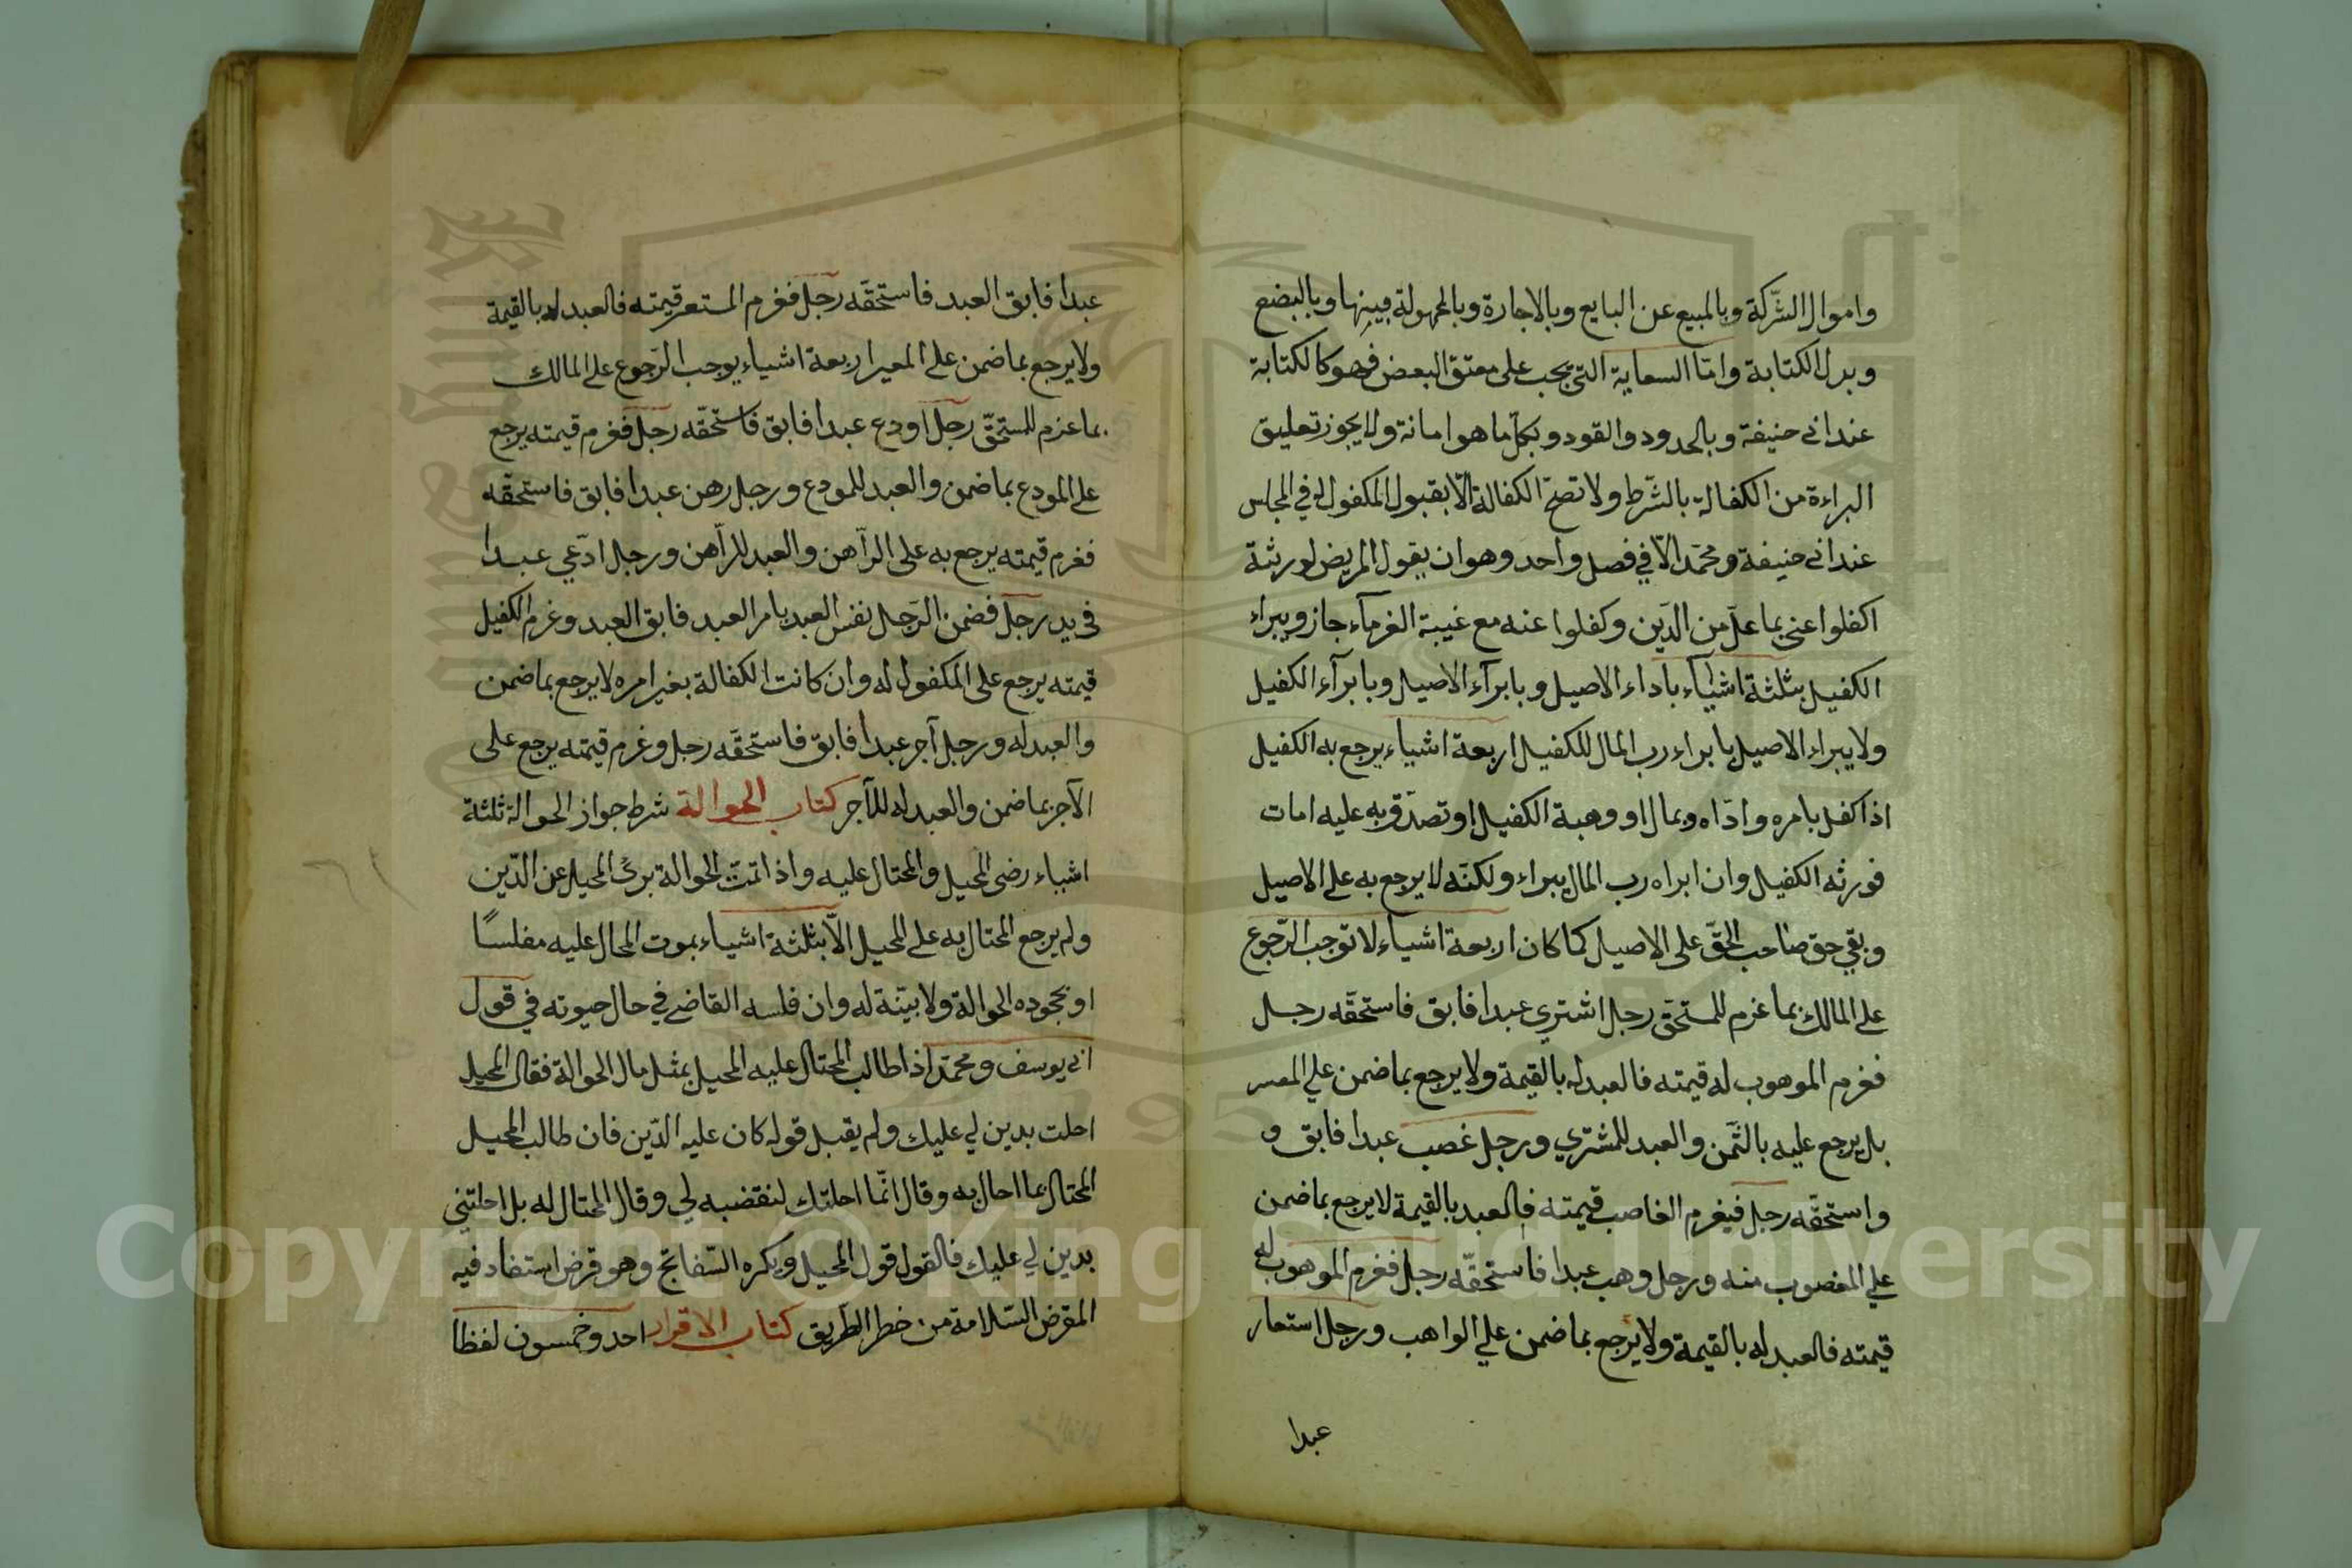 واموال الشّركة وبالمبيع عن البايع وبالاجارة وبالحمولة بعينها وبالبضع
وبدل الكتابة وامّا السعاية التى يجب على معتق البعض فهو كالكتابة
عند ابى حنيفة وبالحدود والقود وبكلّ ما هو امانة ولا يجوز تعليق
البراءة من الكفالة بالشّرط ولا تصحّ الكفالة الّا بقبول المكفول له في المجلس
عند ابى حنيفة ومحمّد الّا في فصل واحد وهو ان يقول المريض لورثته
اكفلوا عنى بما علىّ من الدّين وكفلوا عنه مع غيبة الغرمآء جاز ويبراء
الكفيل بثلثة اشيآء باداء الاصيل وبابرآء الاصيل وبابرآء الكفيل
ولا يبراء الاصيل بابراء رب المال للكفيل اربعة اشياء يرجع به الكفيل
اذا كفل بامره وادّاه وبمال او وهبة الكفيل او تصدّق به عليه امات
فورثه الكفيل وان ابراه رب المال يبراء ولكنّه لا يرجع به على الاصيل
وبقي حق صاحب الحقّ على الاصيل كما كان اربعة اشياء لا توجب الرّجوع
على المالك بما غرم للمستحقّ رجل اشتري عبدا فابق فاستحقّه رجل
فغرم الموهوب له قيمته فالعبد له بالقيمة ولا يرجع بما ضمن علي
بل يرجع عليه بالثّمن والعبد للمشتري ورجل غصب عبدا فابق و
واستحقّه رجل فيغرم الغاصب قيمته فالعبد بالقيمة لا يرجع بما ضمن
علي المغصوب منه ورجل وهب عبدا فاستحقّه رجل فغرم الموهوب له
قيمته فالعبد له بالقيمة ولا يرجع بما ضمن علي الواهب ورجل استعار
عبدا
عبدا فابق العبد فاستحقّه رجل فغرم المستعر قيمته فالعبد له بالقيمة
ولا يرجع بما ضمن على المعير اربعة اشياء يوجب الرّجوع على المالك
بما غرم للمستحقّ رجل اودع عبدا فابق فاستحقّه رجل فغرم قيمته يرجع
على المودع بما ضمن والعبد للمودع ورجل رهن عبدا فابق فاستحقّه
فغرم قيمته يرجع به على الرّاهن والعبد للرّاهن ورجل ادّعي عبدا
فى يد رجل فضمن الرّجل نفس العبد بامر العبد فابق العبد وغرم الكفيل
قيمته يرجع على المكفول له وان كانت الكفالة بغير امره لا يرجع بما ضمن
والعبد له ورجل آجر عبدا فابق فاستحقّه رجل وغرم قيمته يرجع على
الآجر بما ضمن والعبد له للآجر كتاب الحوالة شرط جواز الحوالة ثلثة
اشياء رضى المحيل والمحتال عليه واذا تمّت الحوالة برئ المحيل عن الدّين
ولم يرجع المحتال به على المحيل الّا بثلثة اشياء بموت المحال عليه مفلسًا
او بجحوده الحوالة ولا بيّنة له وان فلسه القاضى في حال حيوته في قول
ابى يوسف ومحمّد اذا طالب المحتال عليه المحيل بمثل مال الحوالة فقال المحيل
احلت بدين لي عليك ولم يقبل قوله كان عليه الدّين فان طالب المحيل
المحتال بما احال به وقال انّما احلتك لتقضه لي وقال المحتال له بل احلتني
بدين لي عليك فالقول قول المحيل ويكره السّفاتج وهو قرض استفاد فيه
المقرض السّلامة من خطر الطّريق كتاب الاقرار احد وخمسون لفظا
Copyright © King Saud University